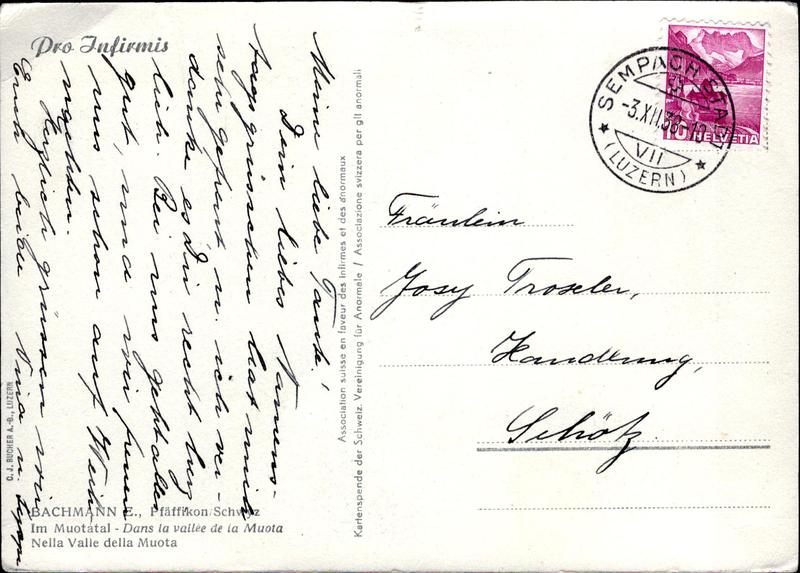 Pro Infirmis
Meine liebe Tante!
Dein liebes Namens-
tagsgrüsschen hat mich
sehr gefreut u. ich ver-
danke es Dir recht herz
lich. Bei uns geht alles
gut, und wir freuen
uns schon auf Weih-
nachten.
Herzlich grüssen wir
Euch beide Nina u.
C. J. BUCHER A.-G., LUZERN
BACHMANN E., Pfäffikon/Schwyz
Im Muotatal - Dans la vallée de la Muota
Nella Valle della Muota
Association suisse en faveur des infirmes et des anormaux
Kartenspende der Schweiz. Vereinigung für Anormale / Associazione svizzera per gli anormali
SEMPACH STADT
-3.XII.38-18
VII
(LUZERN)
10 HELVETIA
Fräulein
Josy Troxler,
Handlung,
Schötz.